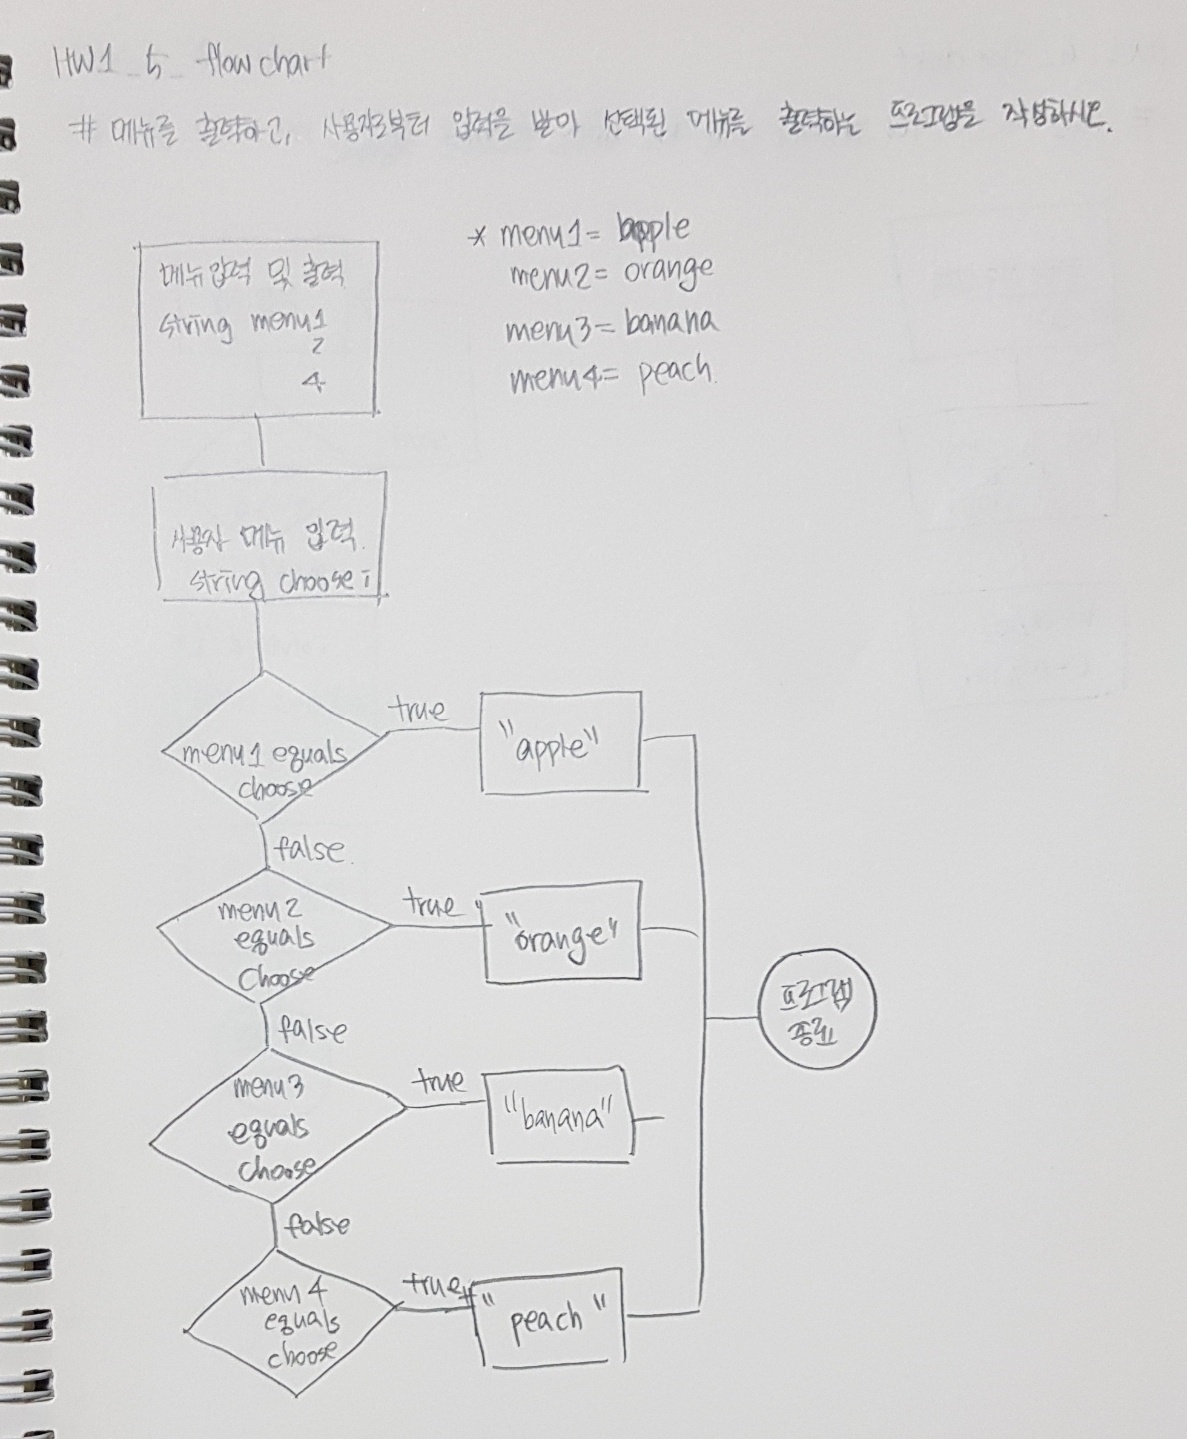 HW1_5_ flow chart
# 메뉴를 출력하고, 사용자로부터 입력을 받아 선택된 메뉴를 출력하는 프로그램을 작성하시오.
* menu1= apple
menu2= orange
menu3= banana
menu4= peach.
메뉴입력 및 출력
string menu1
2
4
사용자 메뉴 입력.
string choose i
menu1 equals
choose
true
"apple"
false.
menu2
equals
choose
true
"orange"
false
menu3
equals
choose
true
"banana"
false
menu4
equals
choose
true
"peach"
프로그램
종료